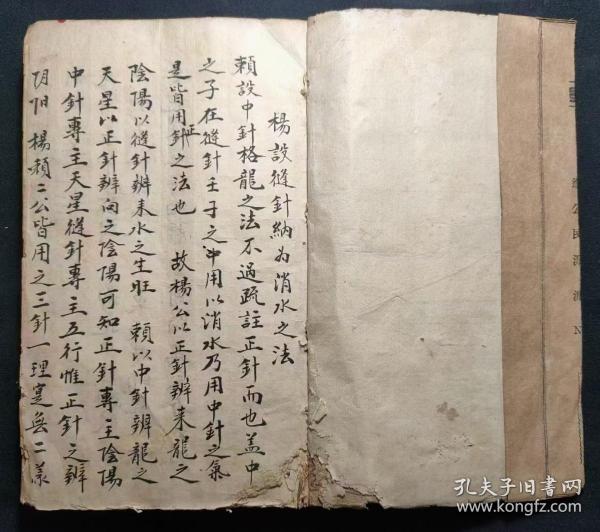 楊設縫針納為消水之法
賴設中針格龍之法不過疏註正針而也盖中
之子在縫針壬子之中用以消水乃用中針之氣
是皆用正針之法也 故楊公以正針辨来龍之
陰陽以縫針辨来水之生旺 賴以中針辨龍之
天星以正針辨向之陰陽可知正針專主陰陽
中針專主天星縫針專主五行惟正針之辨
阴阳楊賴二公皆用之三針一理寔無二義
公民
N
孔夫子旧書网
kongfz.com